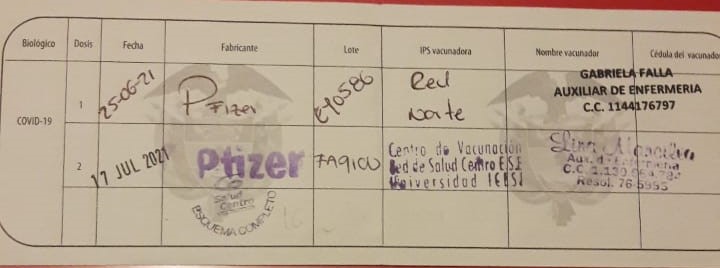 Biológico Dosis Fecha Fabricante Lote IPS vacunadora Nombre vacunador Cédula del vacunado
COVID-19
1 25-06-21 Pfizer EY0586 Red
Norte
GABRIELA FALLA
AUXILIAR DE ENFERMERIA
C.C. 1144176797
2 17 JUL 2021 Pfizer
Centro de Vacunación
Red de Salud Centro E.S.E
Universidad ICESI
Aux. de Enfermería
Resol. 76-5995
Salud
Centro
ESQUEMA COMPLETO